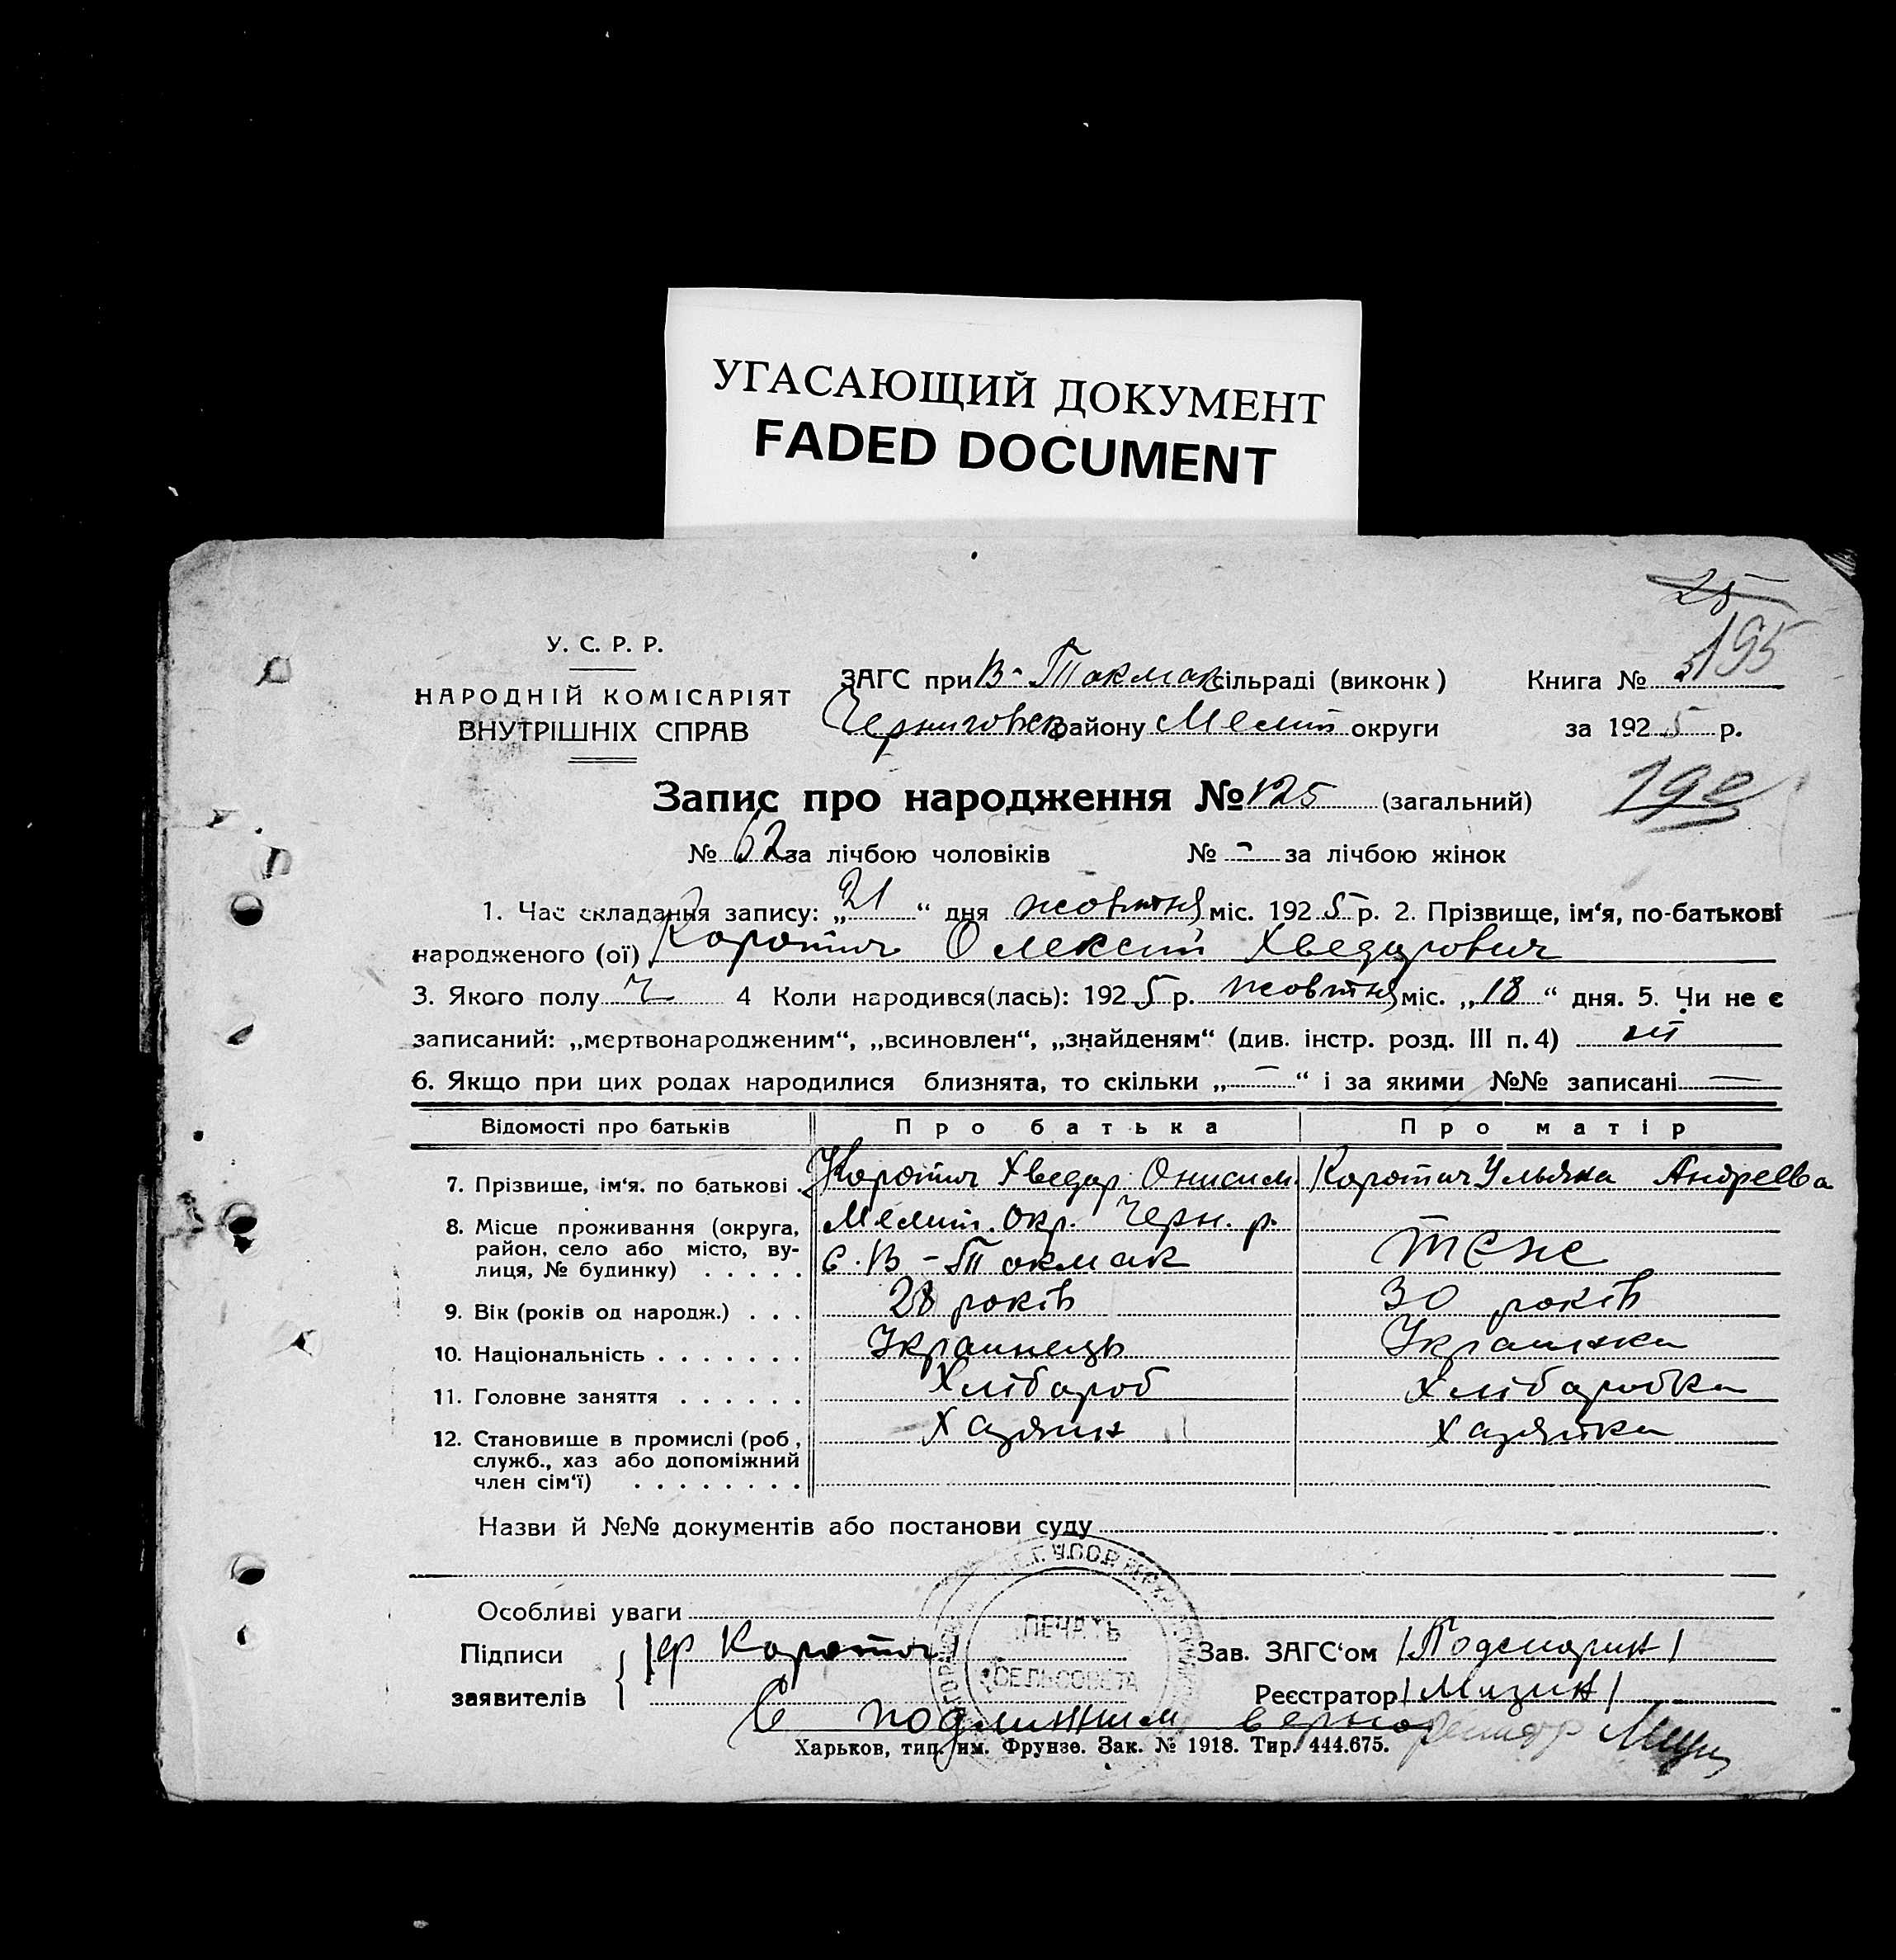 УГАСАЮЩИЙ ДОКУМЕНТ
FADED DOCUMENT
25
195
У. С. Р. Р.
НАРОДНІЙ КОМІСАРІЯТ
ВНУТРІШНІХ СПРАВ
ЗАГС при В-Токмак сільраді (виконк) Книга №
Черниговск району Меліт округи за 1925 р.
Запис про народження № 125 (загальний)
198
№ 62 за лічбою чоловіків № - за лічбою жінок
1. Час складання запису: „21“ дня жовтня міс. 1925 р. 2. Прізвище, ім‘я, по-батькові
народженого (ої) Коротич Олексій Хведорович
3. Якого полу ч 4 Коли народився(лась): 1925 р. жовтня міс. „18“ дня. 5. Чи не є
записаний: „мертвонародженим“, „всиновлен“, „знайденям“ (див. інстр. розд. III п. 4) ні
6. Якщо при цих родах народилися близнята, то скільки „—“ і за якими №№ записані —
Відомості про батьків Про батька Про матір
7. Прізвище, ім‘я. по батькові . Коротич Хведор Онисим. Коротич Ульяна Андреевна
8. Місце проживання (округа, Меліт. Окр. Черн. р.
район, село або місто, ву- с. В-Токмак теж
лиця, № будинку) . . . . .
9. Вік (років од народж.) . . . 28 років 30 років
10. Національність . . . . . . . Украинець Украінка
11. Головне заняття . . . . . . Хлібороб Хліборобка
12. Становище в промислі (роб, Хазяин Хазяйка
служб., хаз або допоміжний
член сім‘ї) . . . . . . . .
Назви й №№ документів або постанови суду
Особливі уваги
Підписи /Ф Коротич/ Зав. ЗАГС‘ом
заявителів Реєстратор /Мизин/
ПЕЧАТЬ
СЕЛЬСОВЕТА
С подлинним верно
Харьков, тип. им. Фрунзе. Зак. № 1918. Тир. 444.675.